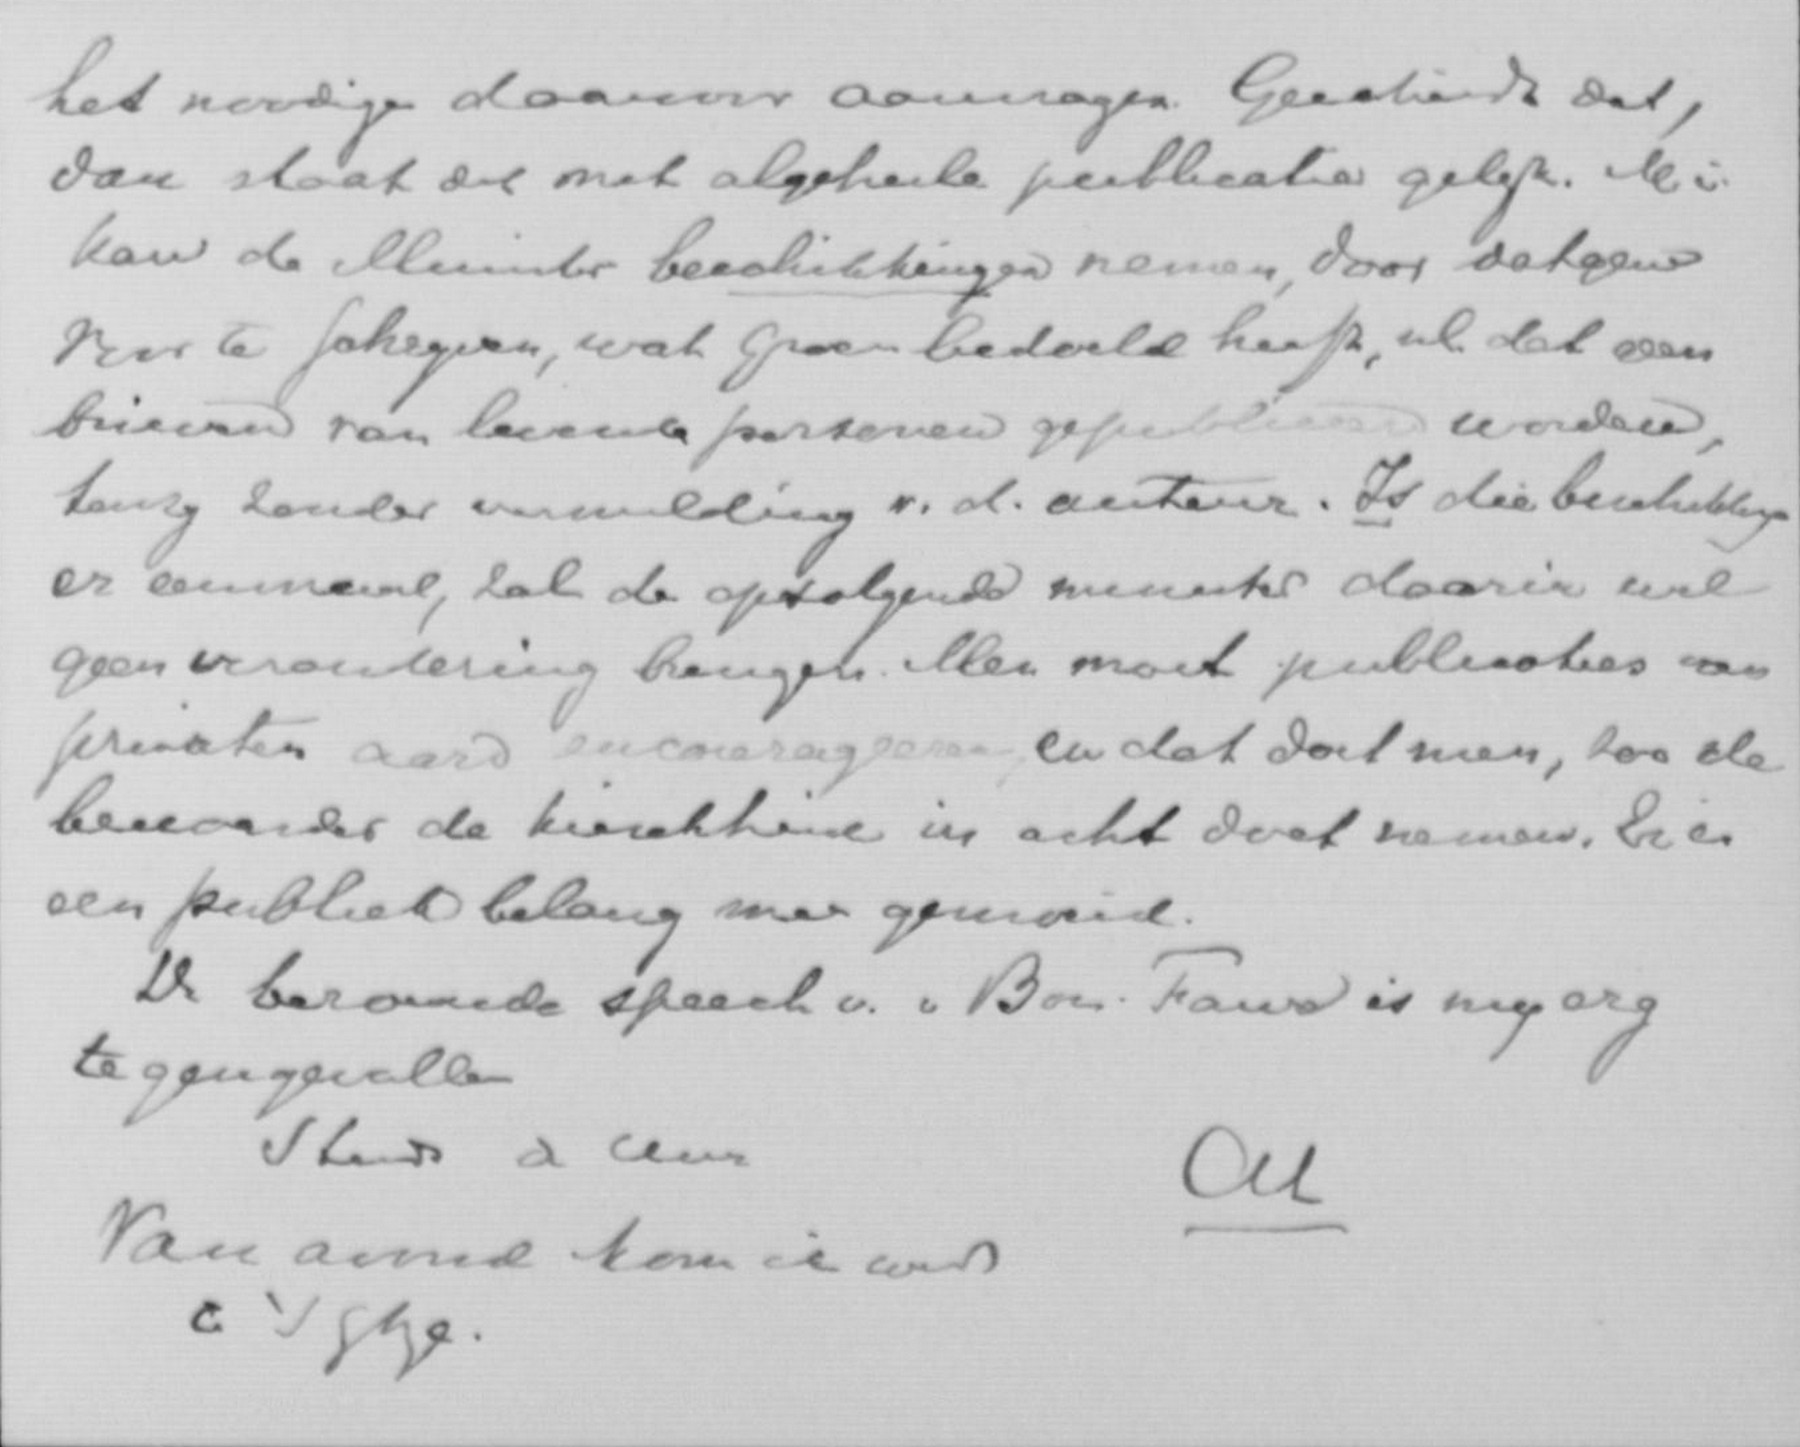 het noodige daarvoor aanvragen. Geschiedt dat,
dan staat dat met algeheele publicatie gelijk. M.i.
kan de Minister beschikkingen nemen, door datgene
voor te schrijven, wat Groen bedoeld heeft, nl. dat geen
brieven van levende personen gepubliceerd worden,
tenzij zonder vermelding v. d. auteur. Is die beschikking
er eenmaal, zal de opvolgende minister daarin wel
geen verandering brengen. Men moet publicaties van
privaten aard encourageeren, en dat doet men, zoo de
bewaarder de in acht doet nemen. Er is
een publiek belang mee gemoeid.
De beroemde speech v. Bon. Faure is mij erg
tegengevallen
Steeds
Van avond kom ik